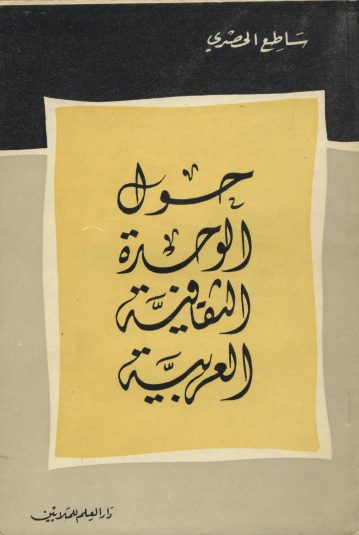 ساطع الحصري
حول
الوحدة
الثقافية
العربية
دار العلم للملايين